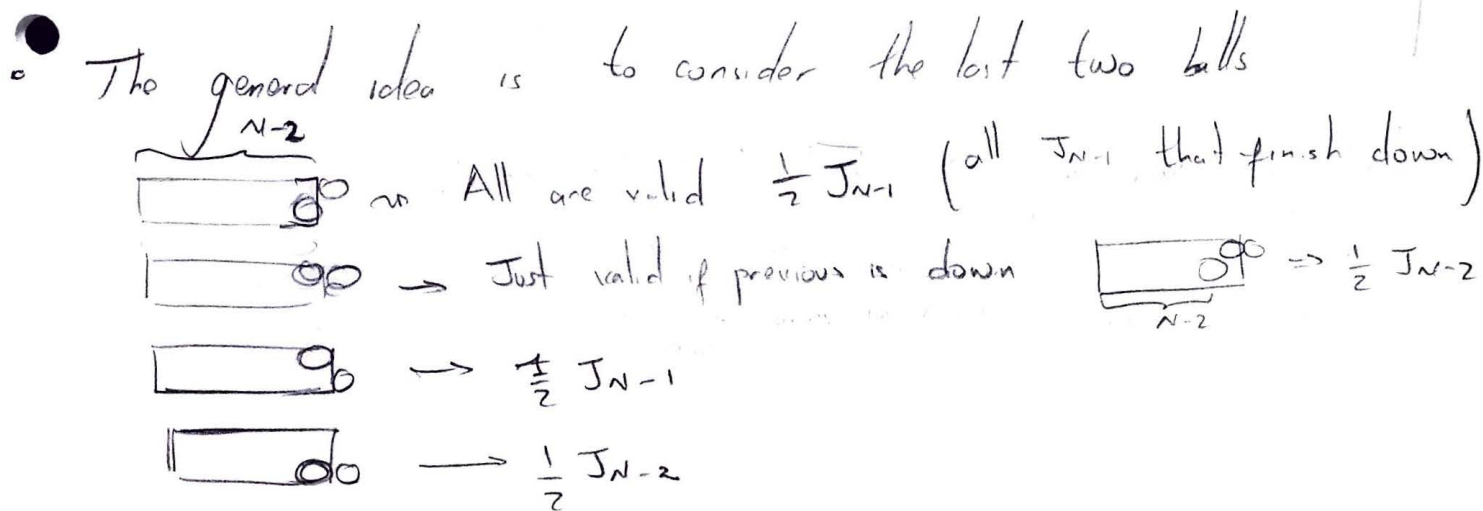 The general idea is to consider the last two balls
N-2
All are valid 1/2 J_{N-1} (all J_{N-1} that finish down)
→ Just valid if previous is down ⇒ 1/2 J_{N-2}
N-2
→ 1/2 J_{N-1}
→ 1/2 J_{N-2}